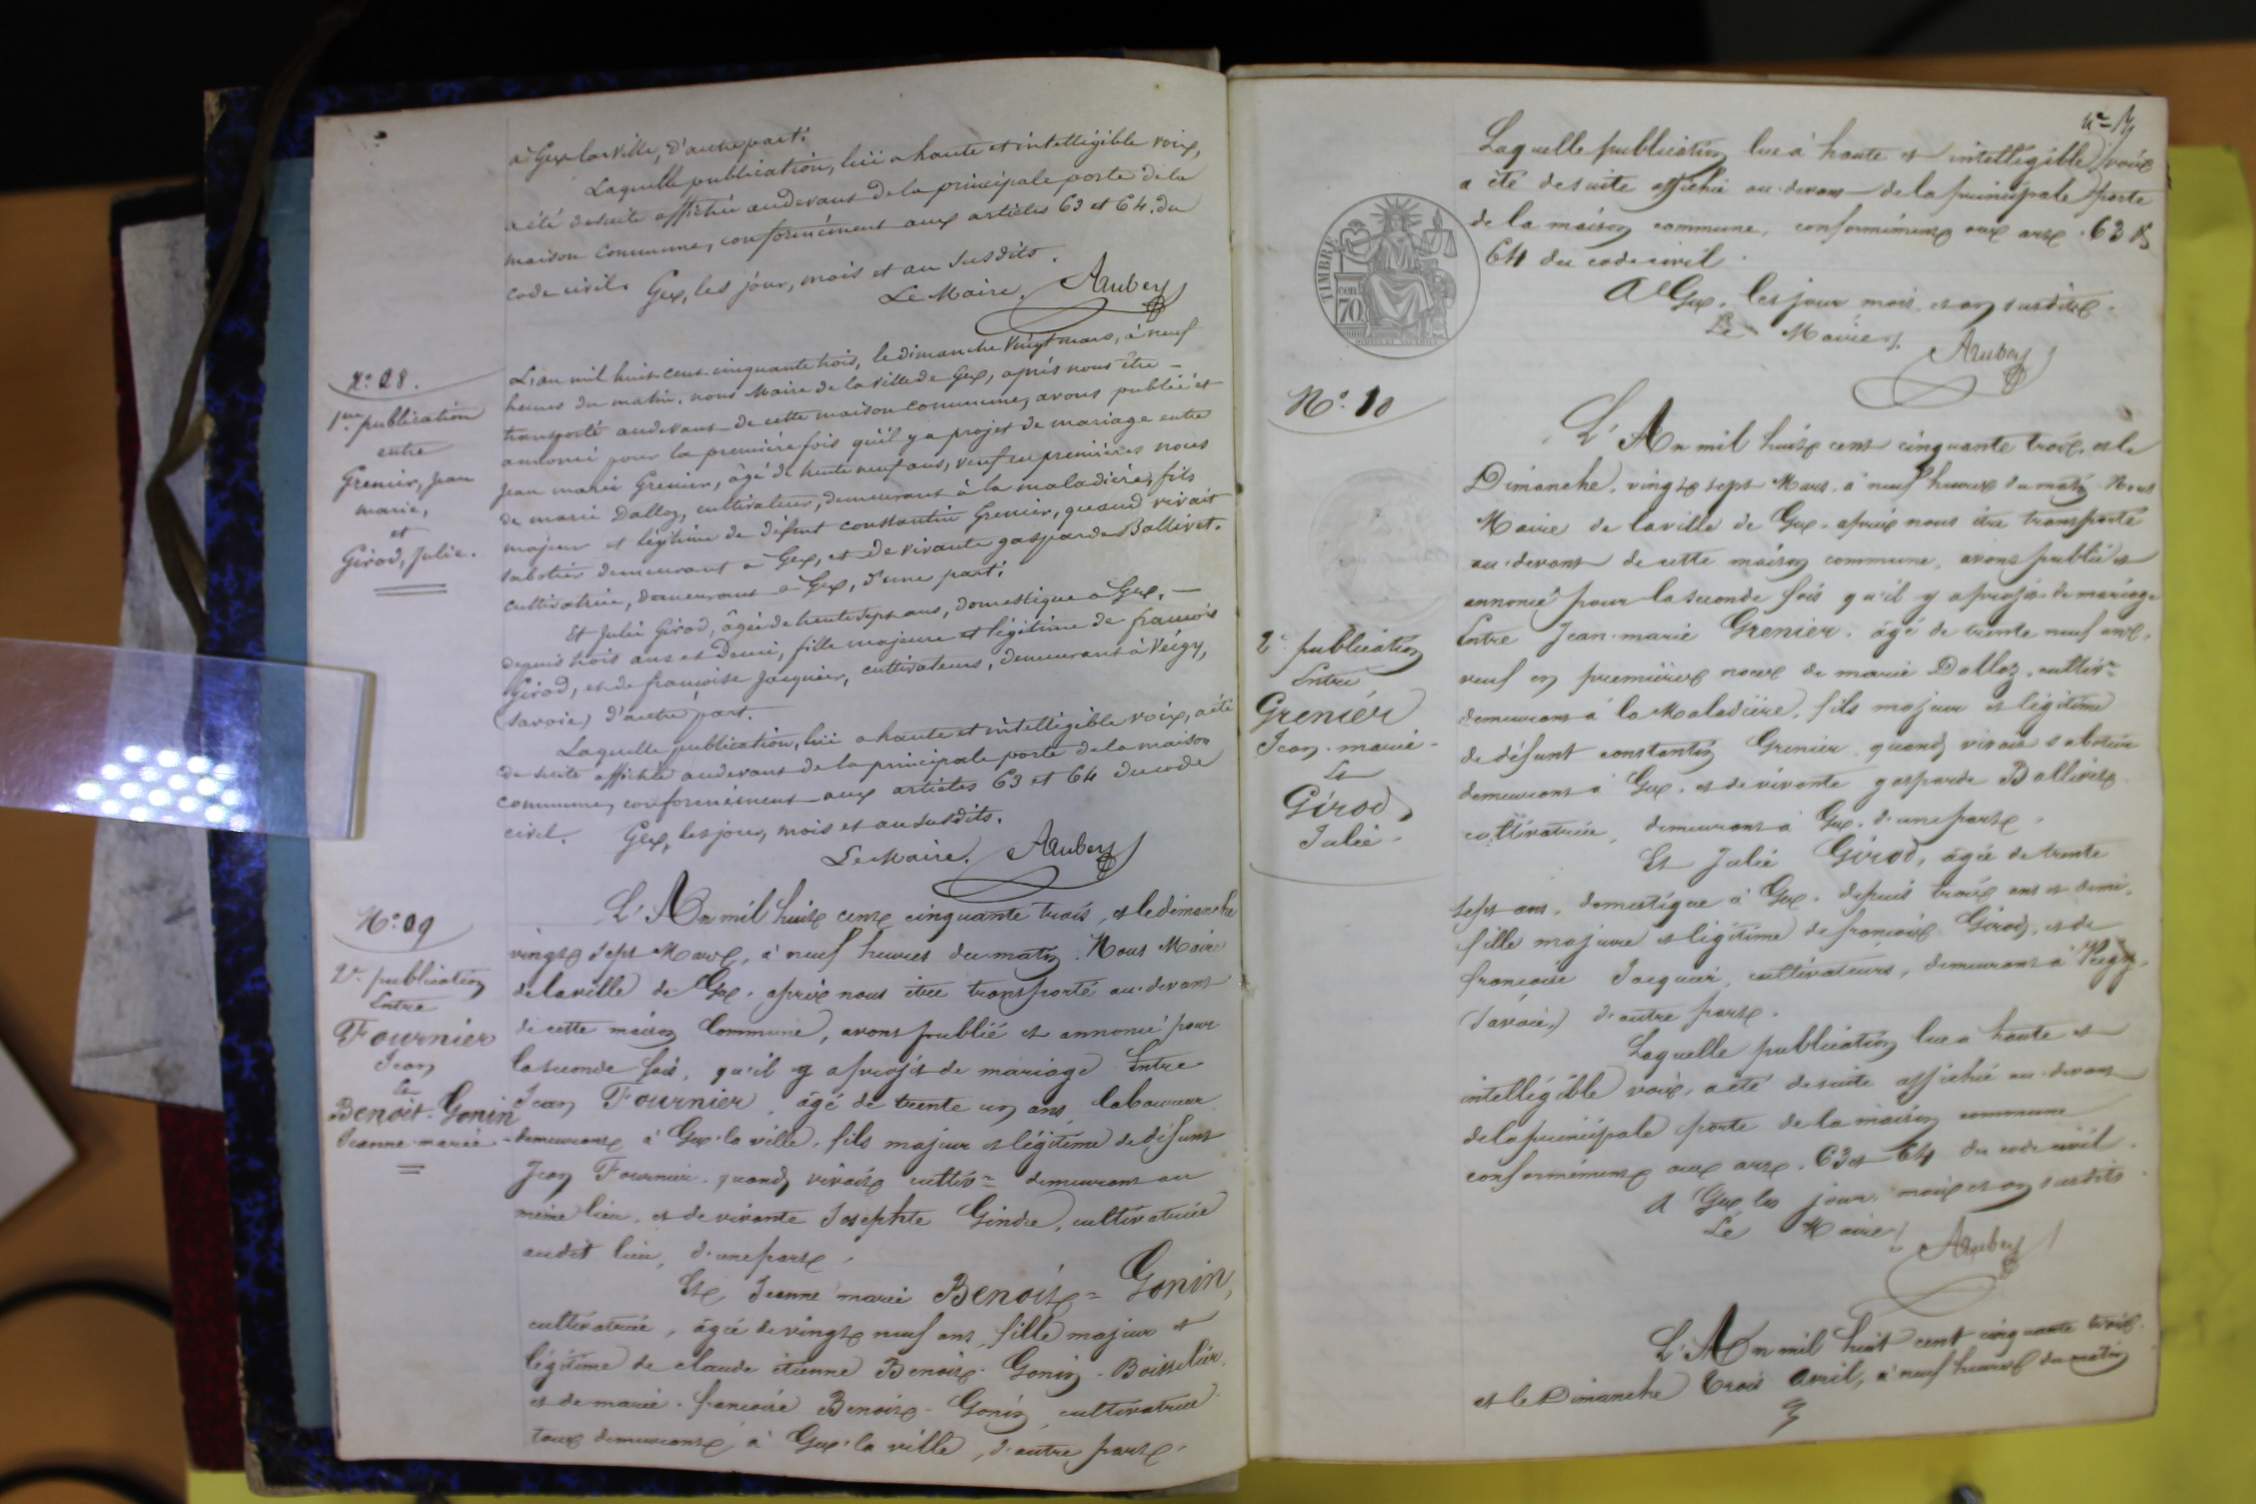 à Gex la ville, d'autre part.
Laquelle publication, lüe a haute et intelligible voix,
a été desuite affichée audevant de la principale porte de la
maison commune, conformément aux articles 63 et 64 du
code civil. Gex, les jour, mois et an susdits.
Le Maire.
N.º 08.
1re publication
entre
Grenier, Jean
marie,
et
Girod, Julie.
L'an mil huit cent cinquante trois, le dimanche vingt mars, à neuf
heures du matin, nous Maire de la ville de Gex, après nous être
transporté audevant de cette maison commune, avons publié et
annoncé pour la première fois qu'il y a projet de mariage entre
Jean marie Grenier, âgé de trente neuf ans, veuf en premières noces
de marie Dalloz, cultivateur, demeurant à la maladière, fils
majeur et légitime de défunt constantin Grenier, quand vivait
sabotier demeurant à Gex, et de vivante gasparde Ballivet,
cultivatrice, demeurant à Gex, d'une part;
Et Julie Girod, âgée de trente sept ans, domestique à Gex,
depuis trois ans et demi, fille majeure et légitime de francois
Girod, et de françoise Jacquier, cultivateurs, demeurant à Veigy,
(Savoie) d'autre part.
Laquelle publication, lüe a haute et intelligible voix, a été
de suite affichée audevant de la principale porte de la maison
commune, conformément aux articles 63 et 64 du code
civil. Gex, les jour, mois et an susdits.
Le Maire.
N.º 09
2e publication
Entre
Fournier
Jean
Et
Benoit-Gonin
Jeanne-marie
L'An mil huit cent cinquante trois, et le dimanche
vingt sept Mars, à neuf heures du matin. Nous Maire
de la ville de Gex, après nous être transporté au-devant
de cette maison Commune, avons publié et annoncé pour
la seconde fois, qu'il y a projet de mariage Entre
Jean Fournier, âgé de trente un ans, laboureur
demeurant à Gex-la ville, fils majeur et légitime de défunt
Jean Fournier, quand vivait cultivr demeurant au
même lieu, et de vivante Josephte Gindre, cultivatrice
audit lieu, d'une part,
Et Jeanne marie Benoit-Gonin,
cultivatrice, âgée de vingt neuf ans, fille majeur et
légitime de claude étienne Benoit-Gonin-Boisselier,
et de marie-francoise Benoit-Gonin, cultivatrice
tous demeurant à Gex-la ville, d'autre part.
Laquelle publication lue à haute et intelligible voix
a été desuite affichée au-devant de la principale porte
de la maison commune, conformément aux art. 63 &
64 du code civil.
A Gex, les jour mois et an susdits.
Le Maire.
TIMBRE
70
N.º 10
2e publication
Entre
Grenier
Jean-marie
Et
Girod
Julie
L'An mil huit cent cinquante trois, et le
Dimanche, vingt sept Mars, à neuf heures du matin. Nous
Maire de la ville de Gex, après nous être transporté
au-devant de cette maison commune, avons publié et
annoncé pour la seconde fois qu'il y a projet de mariage
Entre Jean-marie Grenier, âgé de trente neuf ans,
veuf en premières noces de marie Dalloz, cultivr
demeurant à la Maladière, fils majeur et légitime
de défunt constantin Grenier, quand vivait sabotier
demeurant à Gex, et de vivante gasparde Ballivet
cultivatrice, demeurant à Gex, d'une part.
Et Julie Girod, âgée de trente
sept ans, domestique à Gex, depuis trois ans et demi,
fille majeure et légitime de francois Girod, et de
francoise Jacquier, cultivateurs, demeurant à Veigy,
(Savoie.) d'autre part.
Laquelle publication lue a haute et
intelligible voix, a été desuite affichée au-devant
de la principale porte de la maison commune
conformément aux art. 63 et 64 du code civil.
A Gex les jour, mois et an susdits
Le Maire
L'An mil huit cent cinquante trois
et le Dimanche trois Avril, à neuf heures du matin